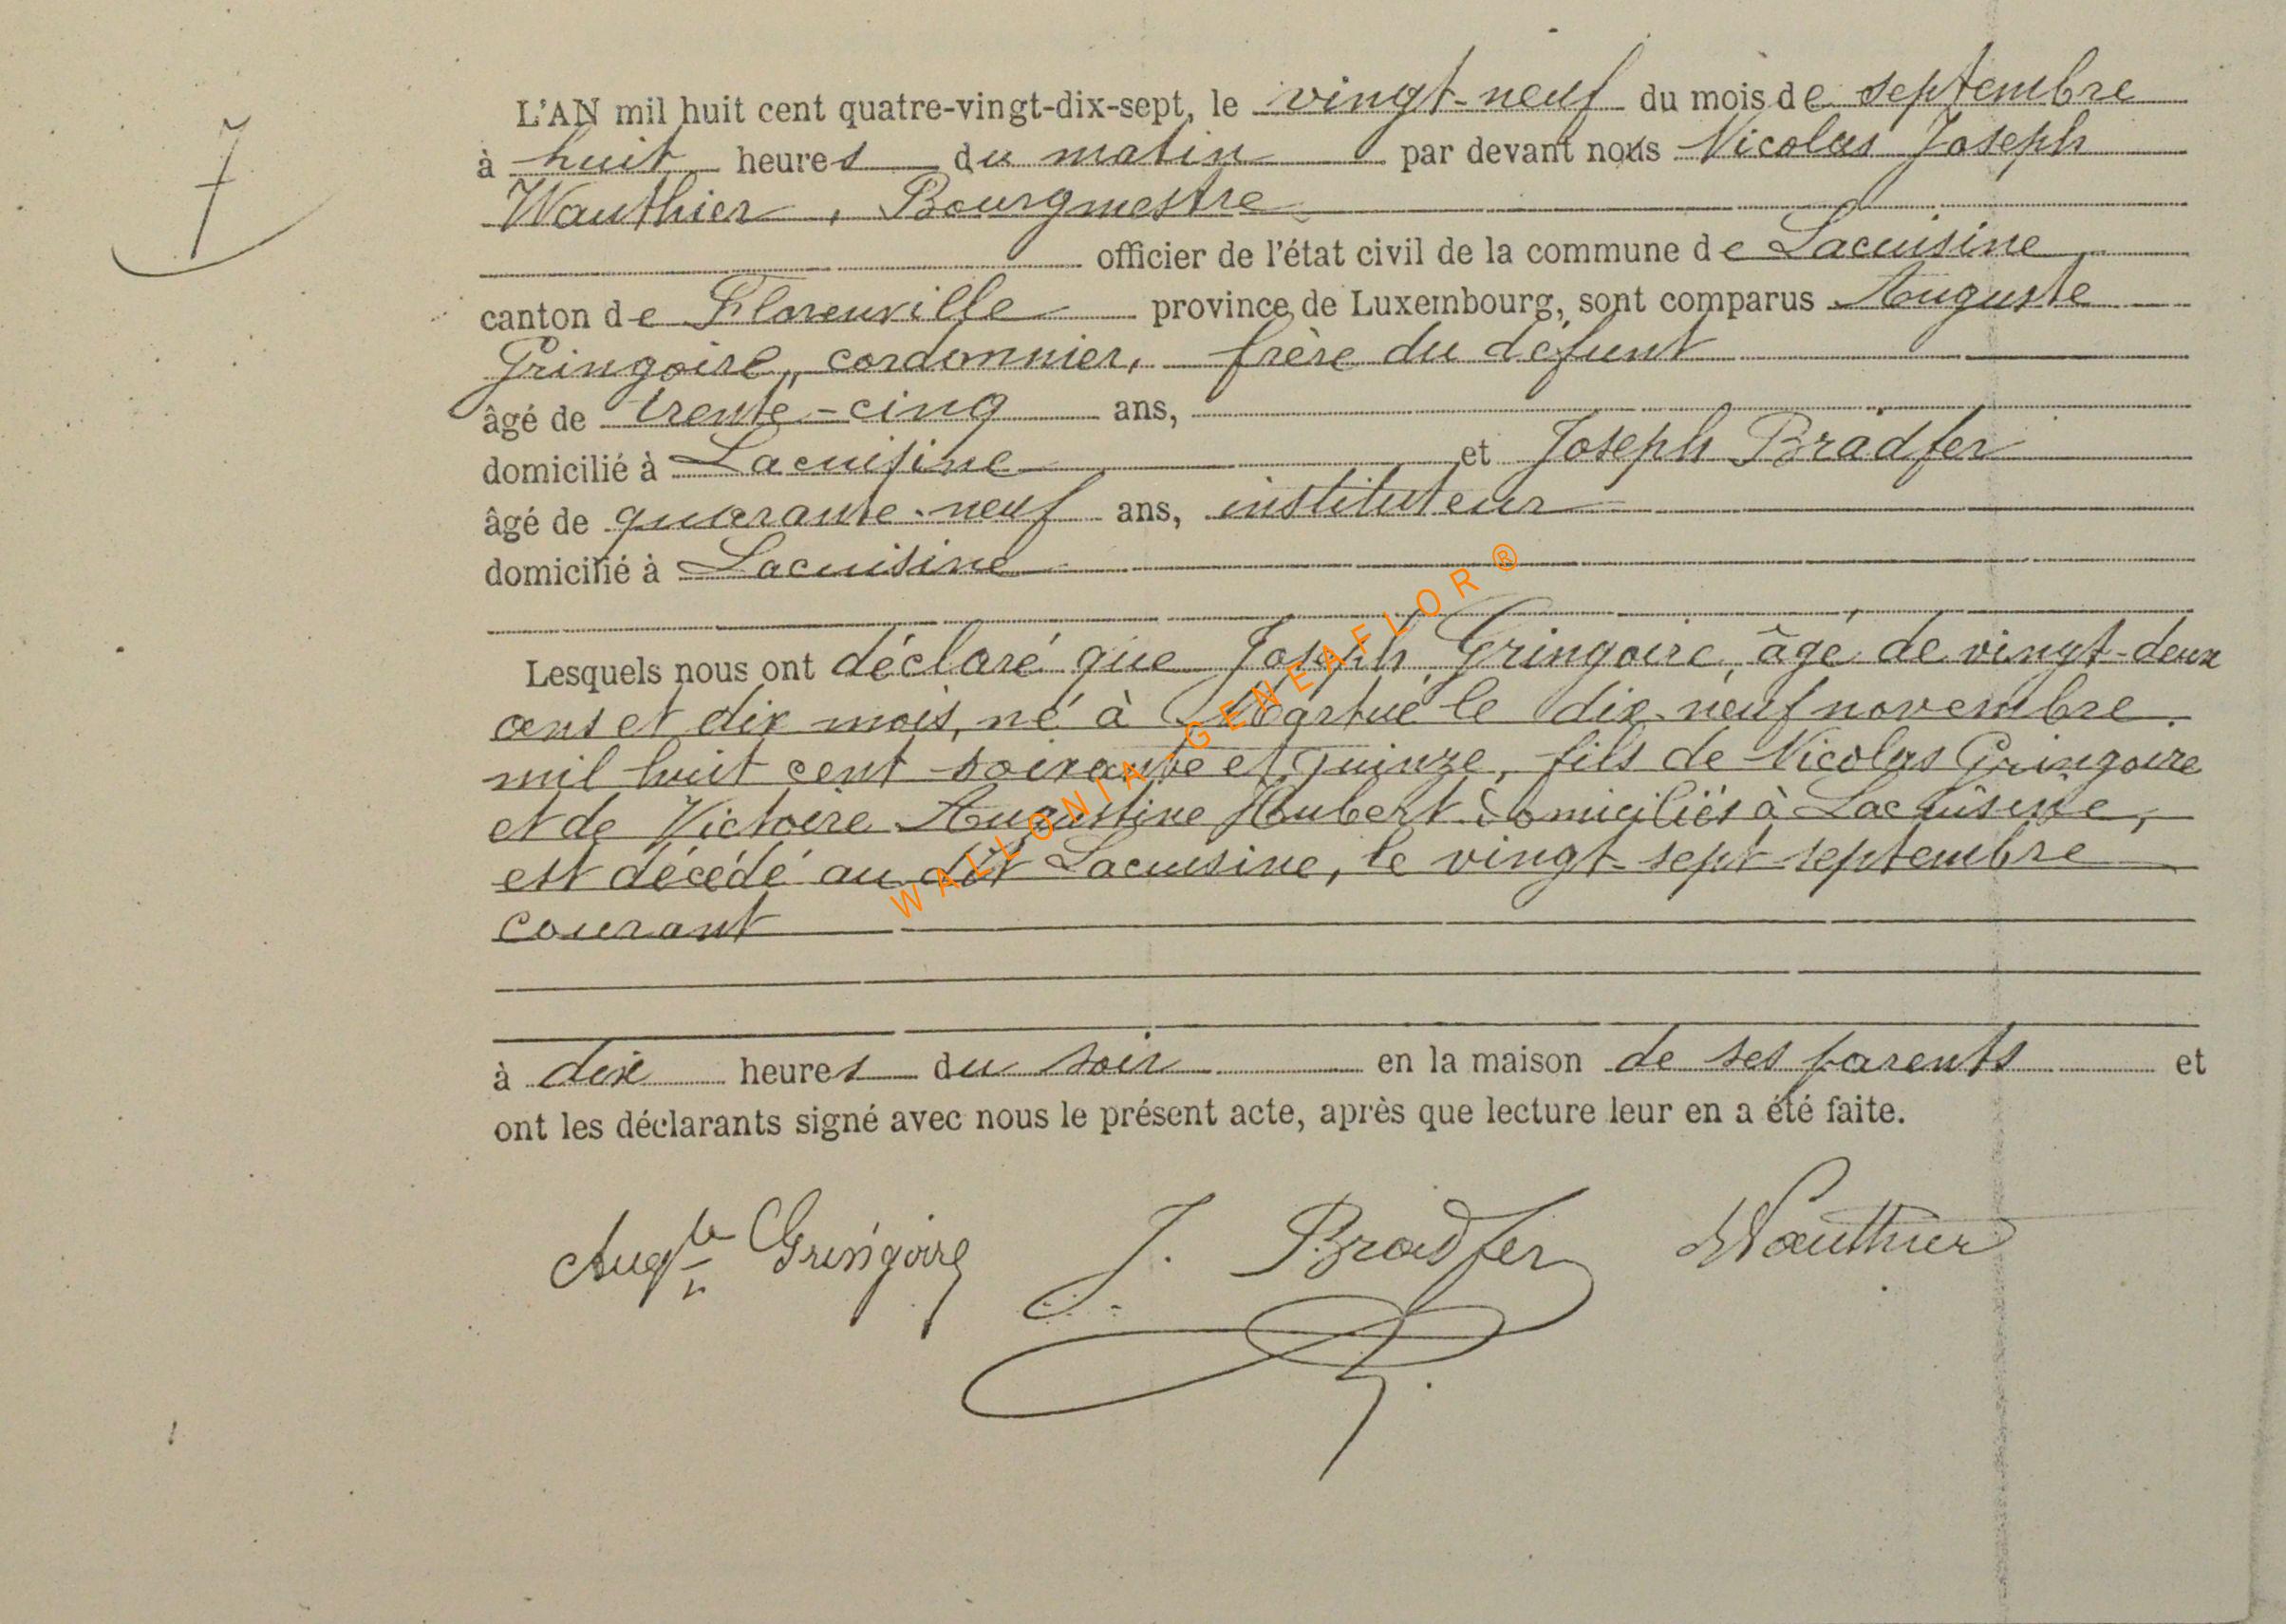 7
L'AN mil huit cent quatre-vingt-dix-sept, le vingt-neuf du mois de septembre
à huit heures du matin par devant nous Nicolas Joseph
Wauthier, Bourgmestre
officier de l'état civil de la commune de Lacuisine
canton de Florenville province de Luxembourg, sont comparus Auguste
Gringoire, cordonnier, frère du défunt
âgé de trente-cinq ans,
domicilié à Lacuisine et Joseph Bradfer
âgé de quarante-neuf ans, instituteur
domicilié à Lacuisine
Lesquels nous ont déclaré que Joseph Gringoire, âgé de vingt-deux
ans et dix mois, né à Martué le dix-neuf novembre
mil huit cent soixante et quinze, fils de Nicolas Gringoire
et de Victoire Augustine Hubert domiciliés à Lacuisine,
est décédé au dit Lacuisine, le vingt-sept septembre
courant
à dix heures du soir en la maison de ses parents et
ont les déclarants signé avec nous le présent acte, après que lecture leur en a été faite.
Augte Gringoire J. Bradfer Wauthier
WALLONIA-GENEAFLOR®